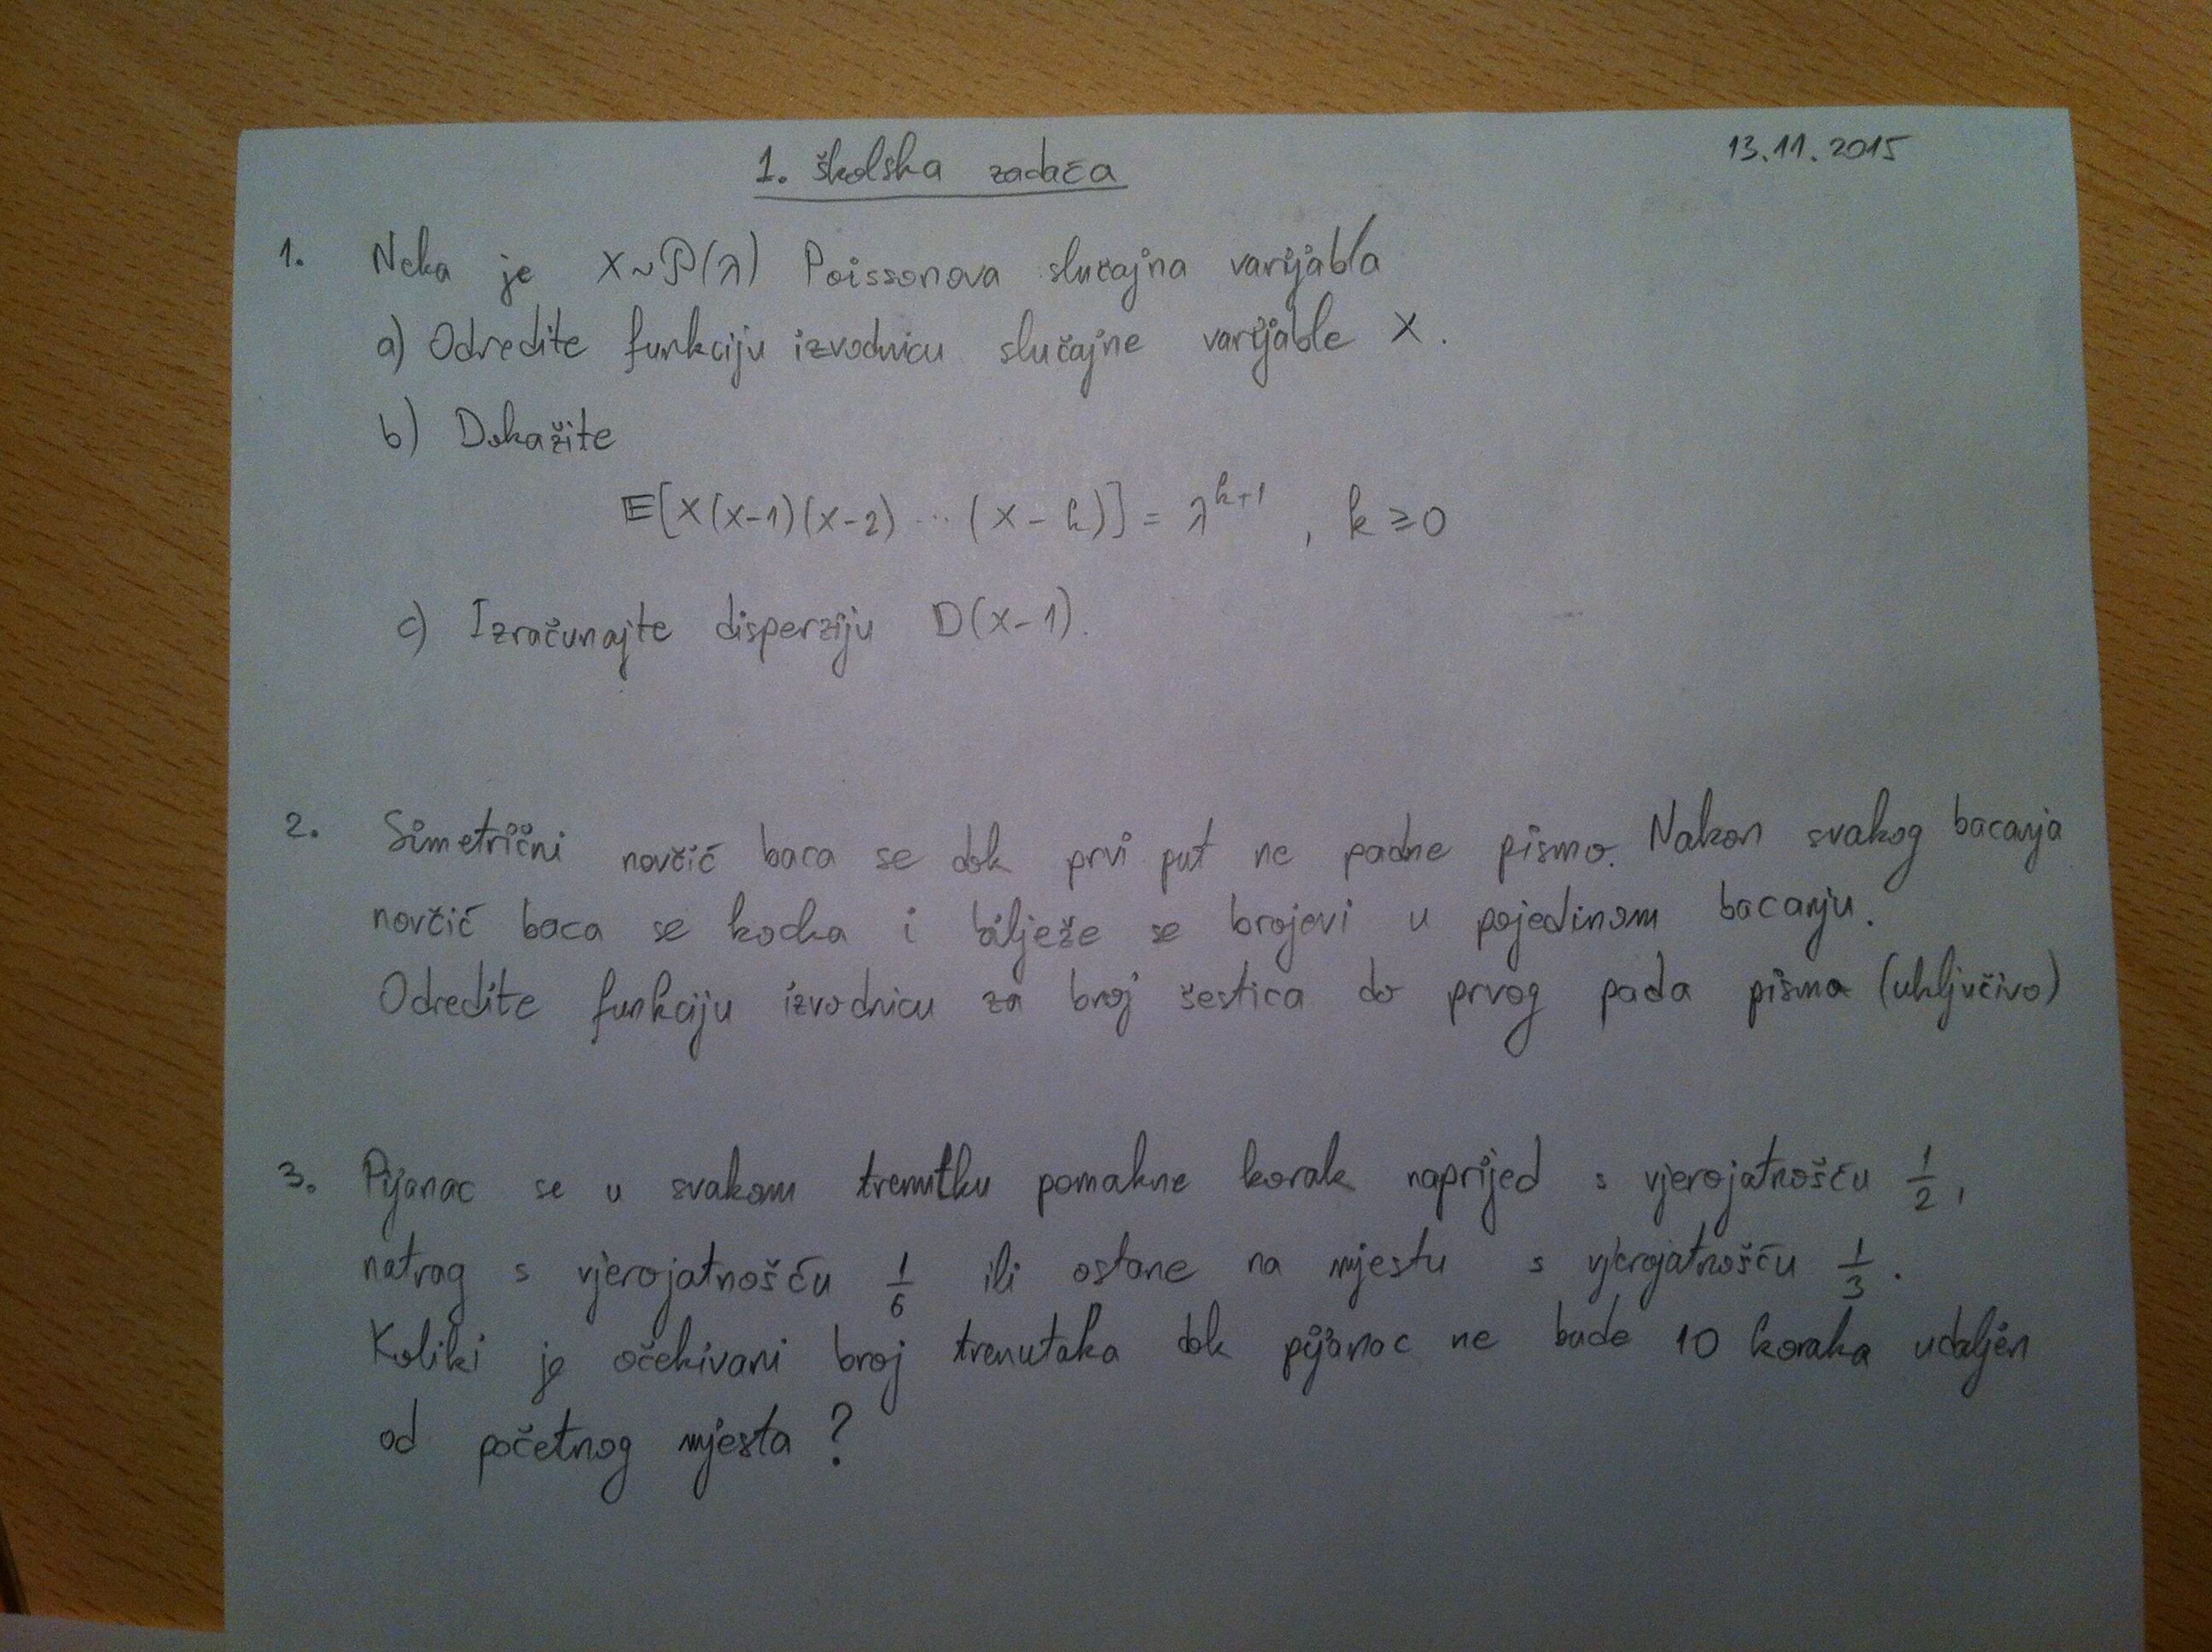 1. školska zadaća
13.11.2015
1. Neka je X~P(λ) Poissonova slučajna varijabla
a) Odredite funkciju izvodnicu slučajne varijable X.
b) Dokažite
E[X(X-1)(X-2) ... (X-k)] = λ^{k+1} , k ≥ 0
c) Izračunajte disperziju D(X-1).
2. Simetrični novčić baca se dok prvi put ne padne pismo. Nakon svakog bacanja
novčić baca se kocka i bilježe se brojevi u pojedinom bacanju.
Odredite funkciju izvodnicu za broj šestica do prvog pada pisma (uključivo)
3. Pijanac se u svakom trenutku pomakne korak naprijed s vjerojatnošću 1/2,
natrag s vjerojatnošću 1/6 ili ostane na mjestu s vjerojatnošću 1/3.
Koliki je očekivani broj trenutaka dok pijanac ne bude 10 koraka udaljen
od početnog mjesta ?